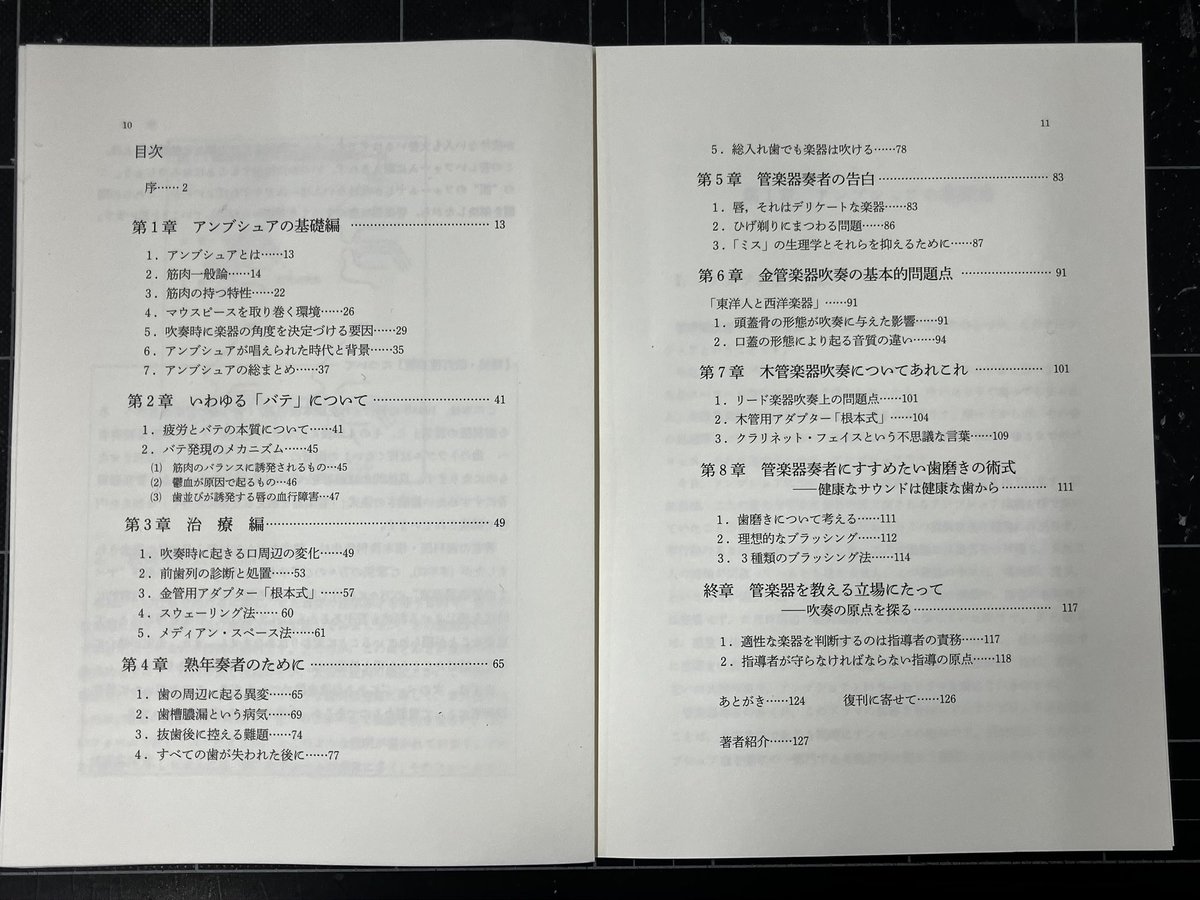 10
目次
序……2
第1章 アンブシュアの基礎編 ……………………………… 13
1．アンブシュアとは……13
2．筋肉一般論……14
3．筋肉の持つ特性……22
4．マウスピースを取り巻く環境……26
5．吹奏時に楽器の角度を決定づける要因……29
6．アンブシュアが唱えられた時代と背景……35
7．アンブシュアの総まとめ……37
第2章 いわゆる「バテ」について ………………………… 41
1．疲労とバテの本質について……41
2．バテ発現のメカニズム……45
(1) 筋肉のバランスに誘発されるもの…45
(2) 鬱血が原因で起るもの…46
(3) 歯並びが誘発する唇の血行障害…47
第3章 治 療 編………………………………………………… 49
1．吹奏時に起きる口周辺の変化……49
2．前歯列の診断と処置……53
3．金管用アダプター「根本式」……57
4．スウェーリング法…… 60
5．メディアン・スペース法……61
第4章 熟年奏者のために ……………………………………… 65
1．歯の周辺に起る異変……65
2．歯槽膿漏という病気……69
3．抜歯後に控える難題……74
4．すべての歯が失われた後に……77
11
5．総入れ歯でも楽器は吹ける……78
第5章 管楽器奏者の告白…………………………………… 83
1．唇，それはデリケートな楽器……83
2．ひげ剃りにまつわる問題……86
3．「ミス」の生理学とそれらを抑えるために……87
第6章 金管楽器吹奏の基本的問題点 …………………… 91
「東洋人と西洋楽器」……91
1．頭蓋骨の形態が吹奏に与えた影響……91
2．口蓋の形態により起る音質の違い……94
第7章 木管楽器吹奏についてあれこれ ……………… 101
1．リード楽器吹奏上の問題点……101
2．木管用アダプター「根本式」……104
3．クラリネット・フェイスという不思議な言葉……109
第8章 管楽器奏者にすすめたい歯磨きの術式
――健康なサウンドは健康な歯から………… 111
1．歯磨きについて考える……111
2．理想的なブラッシング……112
3．3種類のブラッシング法……114
終章 管楽器を教える立場にたって
――吹奏の原点を探る……………………………… 117
1．適性な楽器を判断するのは指導者の責務……117
2．指導者が守らなければならない指導の原点……118
あとがき……124 復刊に寄せて……126
著者紹介……127